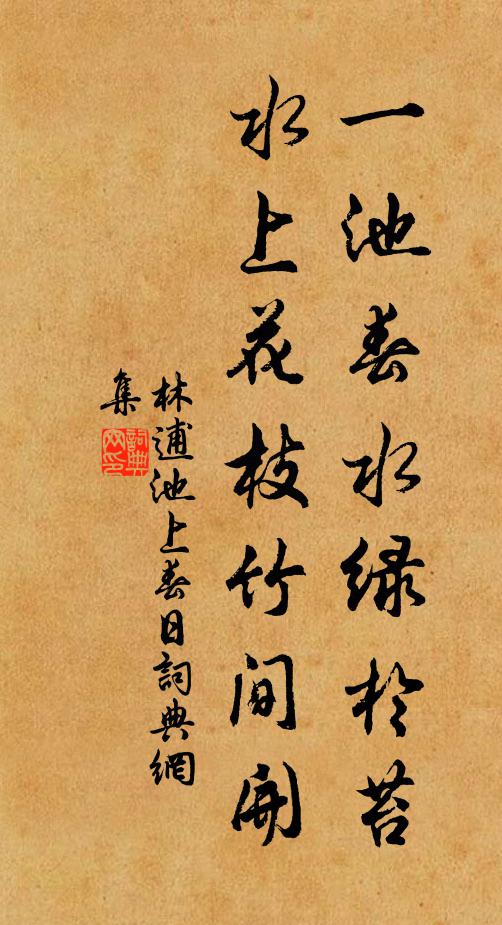 一池春水绿於苔
水上花枝竹间开
林逋池上春日詞典網
集
詞典
网印